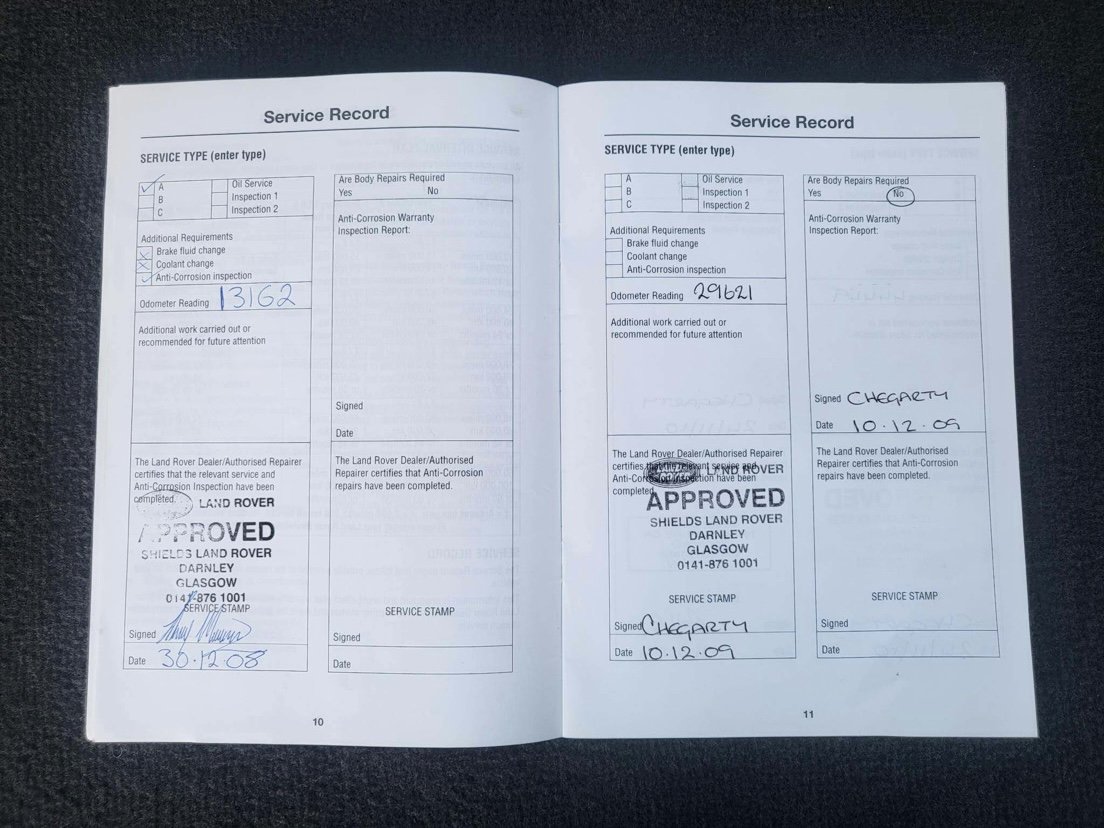 Service Record
SERVICE TYPE (enter type)
A
B
C
Oil Service
Inspection 1
Inspection 2
Additional Requirements
Brake fluid change
Coolant change
Anti-Corrosion inspection
Odometer Reading 13162
Additional work carried out or
recommended for future attention
The Land Rover Dealer/Authorised Repairer
certifies that the relevant service and
Anti-Corrosion Inspection have been
completed.
LAND ROVER
APPROVED
SHIELDS LAND ROVER
DARNLEY
GLASGOW
0141-876 1001
SERVICE STAMP
Signed
Date 30.12.08
Are Body Repairs Required
Yes No
Anti-Corrosion Warranty
Inspection Report:
Signed
Date
The Land Rover Dealer/Authorised
Repairer certifies that Anti-Corrosion
repairs have been completed.
SERVICE STAMP
Signed
Date
10
Service Record
SERVICE TYPE (enter type)
A
B
C
Oil Service
Inspection 1
Inspection 2
Additional Requirements
Brake fluid change
Coolant change
Anti-Corrosion inspection
Odometer Reading 29621
Additional work carried out or
recommended for future attention
The Land Rover Dealer/Authorised Repairer
certifies that the relevant service and
Anti-Corrosion Inspection have been
completed.
LAND ROVER
APPROVED
SHIELDS LAND ROVER
DARNLEY
GLASGOW
0141-876 1001
SERVICE STAMP
Signed CHEGARTY
Date 10.12.09
Are Body Repairs Required
Yes No
Anti-Corrosion Warranty
Inspection Report:
Signed CHEGARTY
Date 10.12.09
The Land Rover Dealer/Authorised
Repairer certifies that Anti-Corrosion
repairs have been completed.
SERVICE STAMP
Signed
Date
11